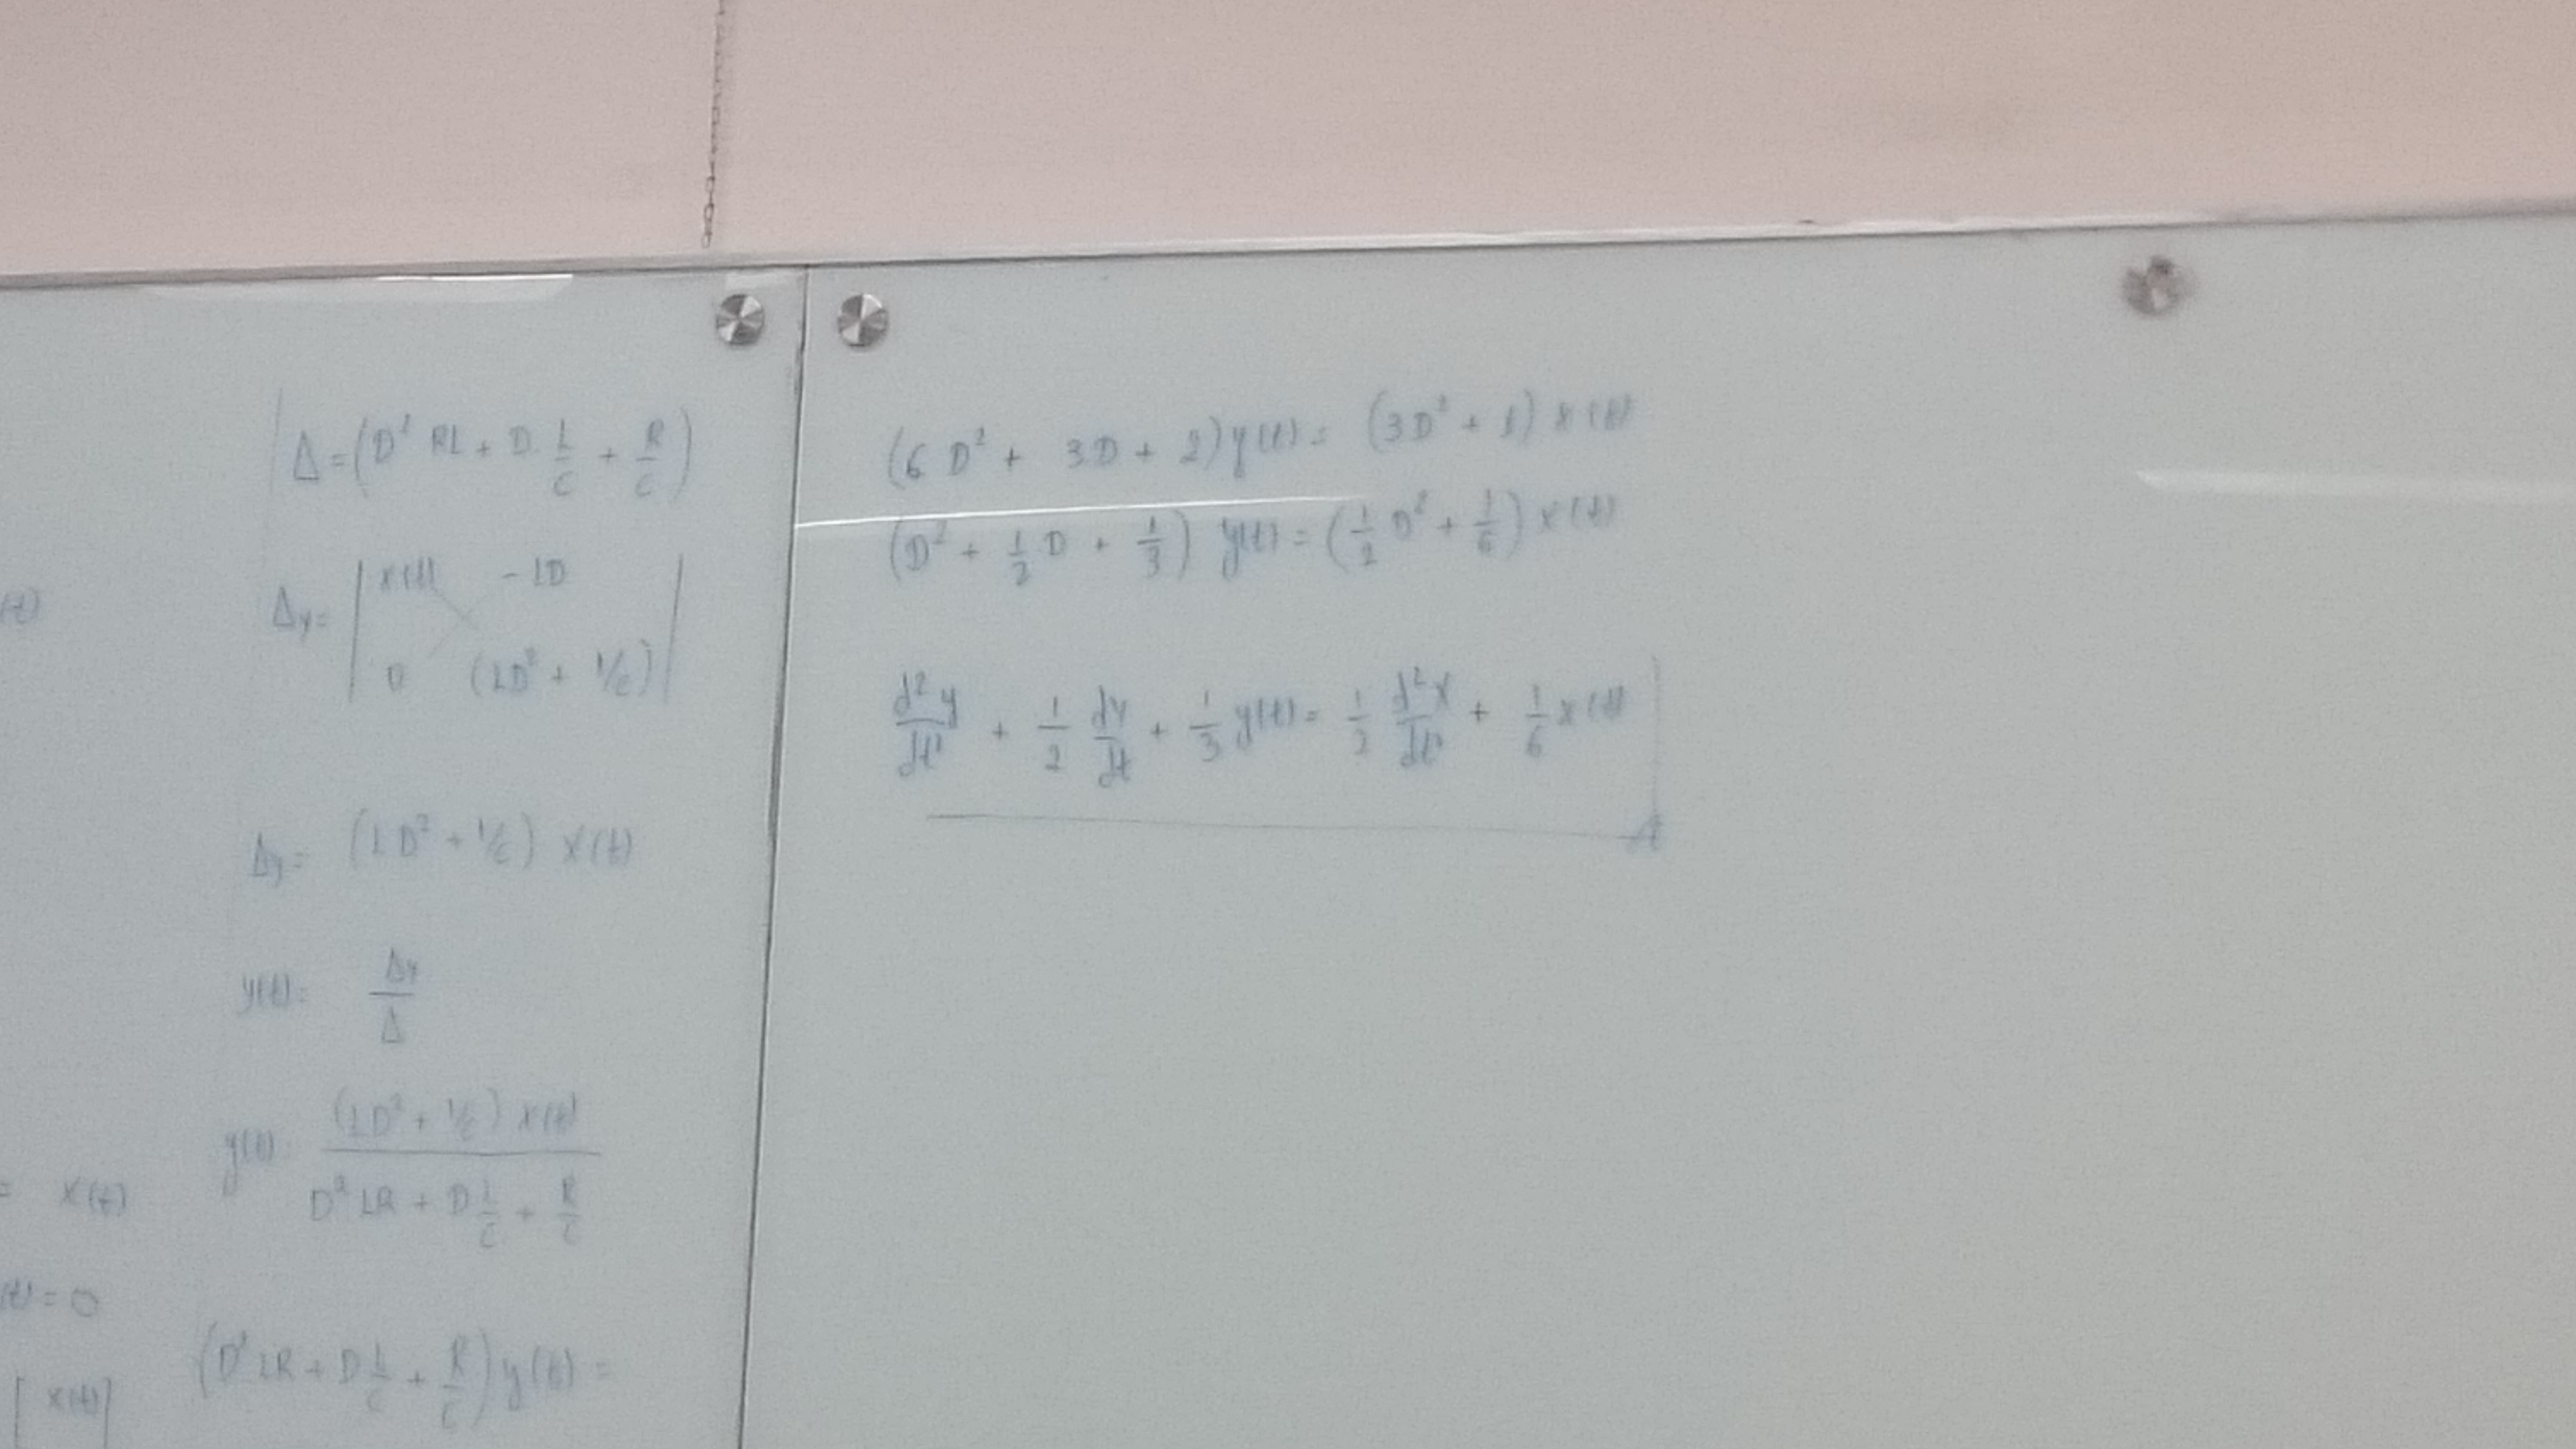 (t)
= x(t)
(t) = 0
[x(t)]
Δ = (D² RL + D · L/C + R/C)
Δy = | x(t) -LD |
| 0 (LD² + 1/C) |
Δy = (LD² + 1/C) x(t)
y(t) = Δy/Δ
y(t) = (LD² + 1/C) x(t) / D² LR + D L/C + R/C
(D² LR + D L/C + R/C) y(t) =
(6 D² + 3D + 2) y(t) = (3D² + 1) x(t)
(D² + 1/2 D + 1/3) y(t) = (1/2 D² + 1/6) x(t)
d²y/dt² + 1/2 dy/dt + 1/3 y(t) = 1/2 d²x/dt² + 1/6 x(t)